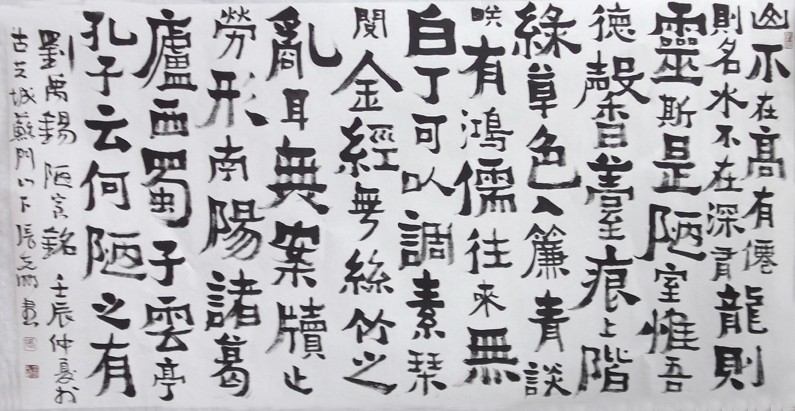 山不在高有僊
則名水不在深有龍則
靈斯是陋室惟吾
德馨薹痕上階
綠草色入簾青談
咲有鴻儒往來無
白丁可以調素琹
閱金經無絲竹之
亂耳無案牘之
勞形南陽諸葛
廬西蜀子雲亭
孔子云何陋之有
劉禹錫陋室銘 壬辰仲夏於
城蘇門山下張